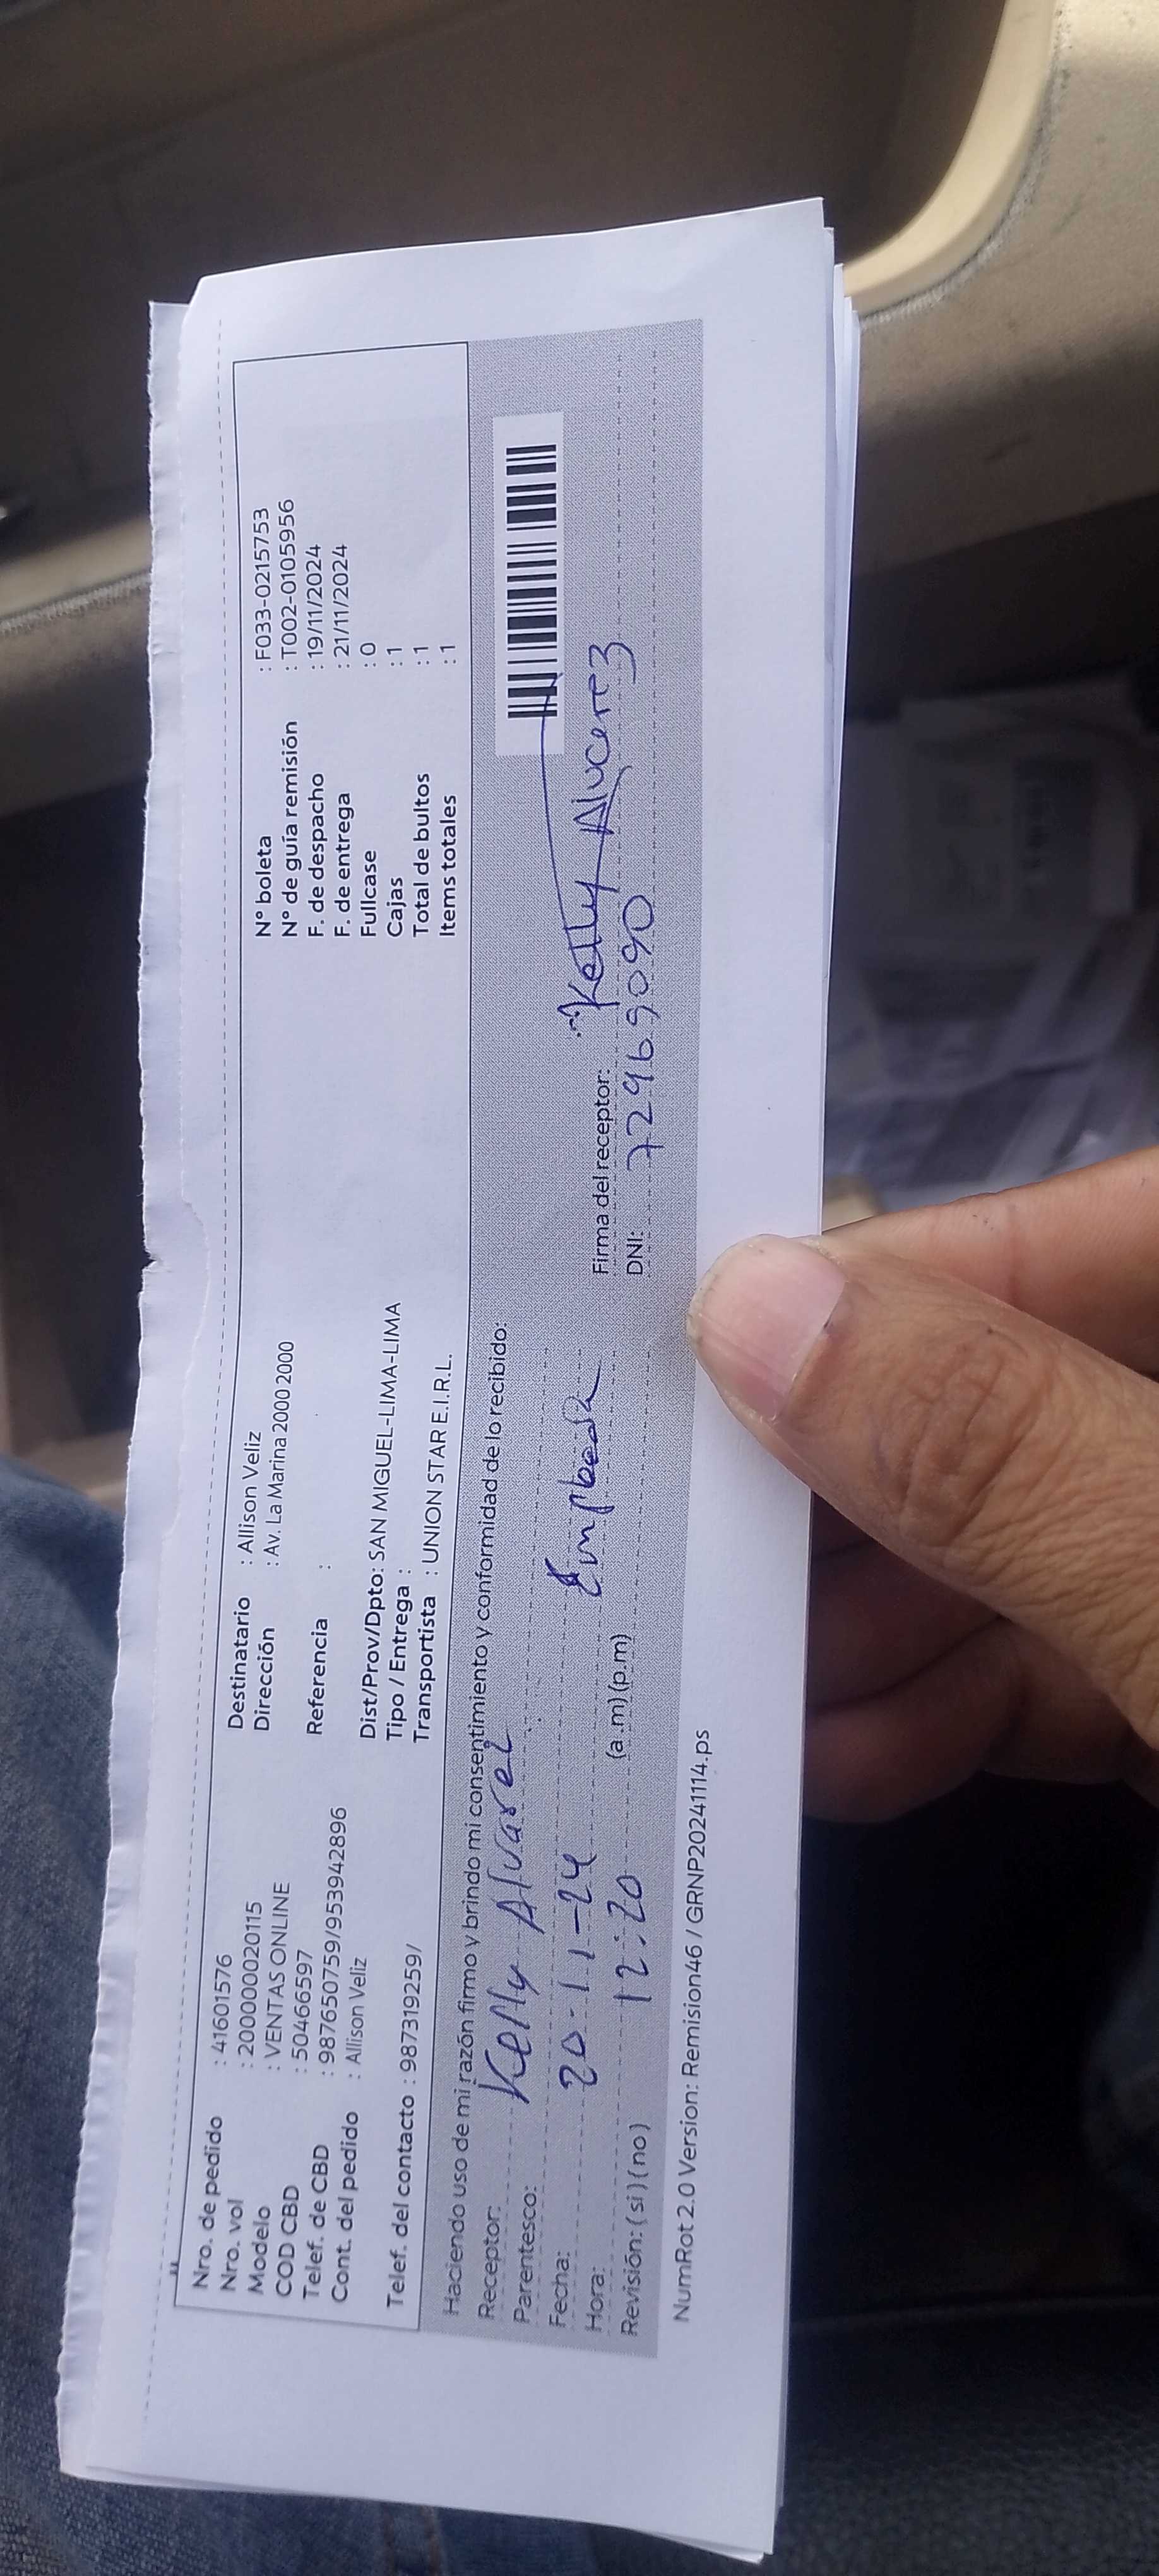 Nro. de pedido : 41601576
Nro. vol : 200000020115
Modelo : VENTAS ONLINE
COD CBD : 50466597
Telef. de CBD : 987650759/953942896
Cont. del pedido : Allison Veliz
Telef. del contacto : 987319259/
Destinatario : Allison Veliz
Dirección : Av. La Marina 2000 2000
Referencia :
Dist/Prov/Dpto: SAN MIGUEL-LIMA-LIMA
Tipo / Entrega :
Transportista : UNION STAR E.I.R.L.
N° boleta : F033-0215753
N° de guía remisión : T002-0105956
F. de despacho : 19/11/2024
F. de entrega : 21/11/2024
Fullcase : 0
Cajas : 1
Total de bultos : 1
Items totales : 1
Haciendo uso de mi razón firmo y brindo mi consentimiento y conformidad de lo recibido:
Receptor: Kelly Alvarez
Parentesco:
Fecha: 20-11-24
Hora: 12:20 (a.m) (p.m)
Revisión: ( si ) ( no )
Firma del receptor: Kelly Alvarez
DNI: 72969090
NumRot 2.0 Version: Remision46 / GRNP20241114.ps